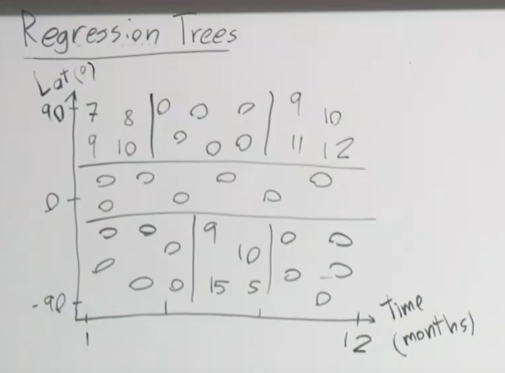 Regression Trees
Lat(°)
90 7 8 0 0 0 9 10
9 10 0 0 0 11 12
0 0 0 0
0 0 0 0
0 0 0 9 10 0 0
0 0 0 15 5 0 0
0
-90
1 12
Time
(months)